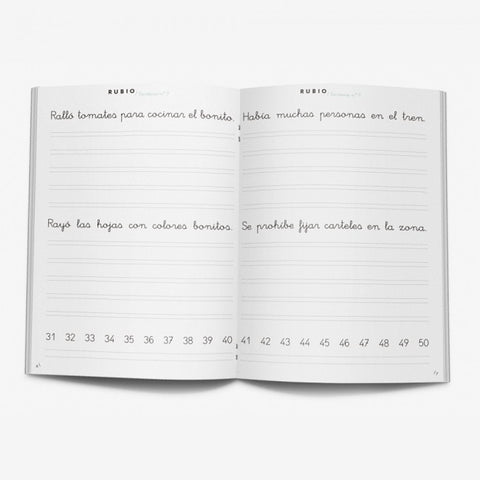 RUBIO
Ralló tomates para cocinar el bonito.
Rayó las hojas con colores bonitos.
31 32 33 34 35 36 37 38 39 40
RUBIO
Había muchas personas en el tren.
Se prohíbe fijar carteles en la zona.
41 42 43 44 45 46 47 48 49 50